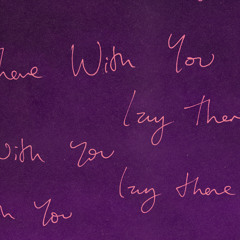 here With You
lay Ther
With You
lay there
th You